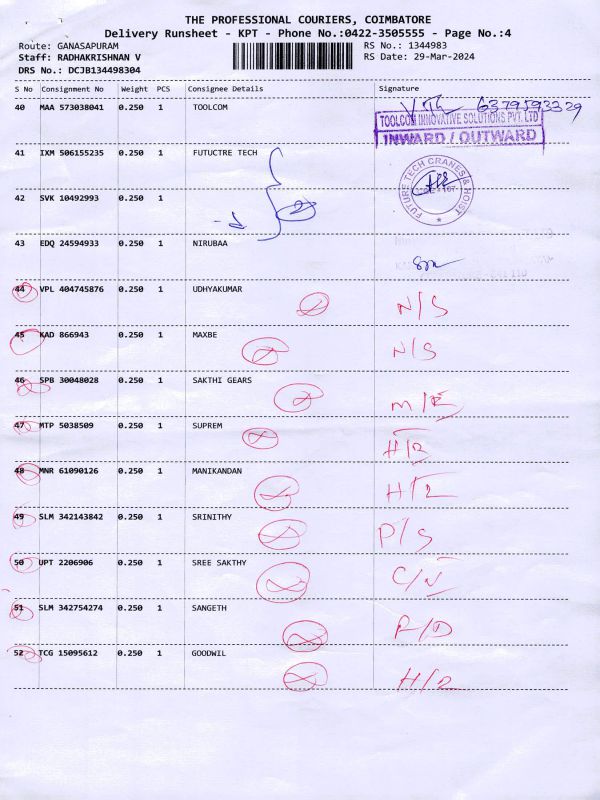 THE PROFESSIONAL COURIERS, COIMBATORE
Delivery Runsheet - KPT - Phone No.:0422-3505555 - Page No.:4
Route: GANASAPURAM RS No.: 1344983
Staff: RADHAKRISHNAN V RS Date: 29-Mar-2024
DRS No.: DCJB134498304
S No Consignment No Weight PCS Consignee Details Signature
40 MAA 573038041 0.250 1 TOOLCOM 6379593329
TOOLCOM INNOVATIVE SOLUTIONS PVT. LTD
INWARD / OUTWARD
41 IXM 506155235 0.250 1 FUTUCTRE TECH
FUTURE TECH CRANES & HOIST
42 SVK 10492993 0.250 1
43 EDQ 24594933 0.250 1 NIRUBAA
44 VPL 404745876 0.250 1 UDHYAKUMAR N/S
45 KAD 866943 0.250 1 MAXBE N/S
46 SPB 30048028 0.250 1 SAKTHI GEARS M/E
47 MTP 5038509 0.250 1 SUPREM H/2
48 MNR 61090126 0.250 1 MANIKANDAN H/2
49 SLM 342143842 0.250 1 SRINITHY P/S
50 UPT 2206906 0.250 1 SREE SAKTHY C/N
51 SLM 342754274 0.250 1 SANGETH R/D
52 TCG 15095612 0.250 1 GOODWIL H/2